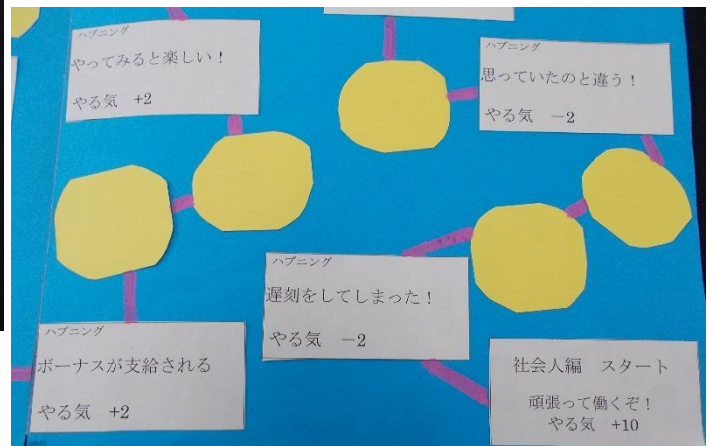 ハプニング
やってみると楽しい！
やる気 +2
ハプニング
思っていたのと違う！
やる気 －2
ハプニング
遅刻をしてしまった！
やる気 －2
ハプニング
ボーナスが支給される
やる気 +2
社会人編 スタート
頑張って働くぞ！
やる気 +10